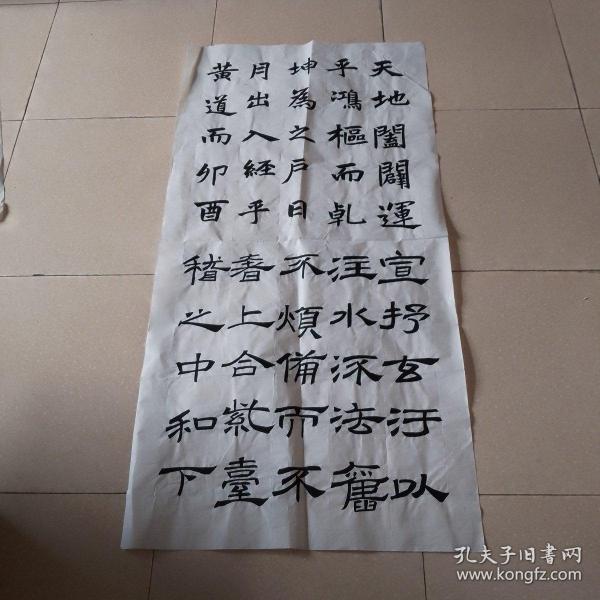 天地闔闢運
乎鴻樞而乹
坤為之戶日
月出入經乎
黃道而卯酉
宣抒玄汙以
注水流法舊
不煩備而不
奢上合紫臺
稽之中和下
孔夫子旧書网
www.kongfz.com